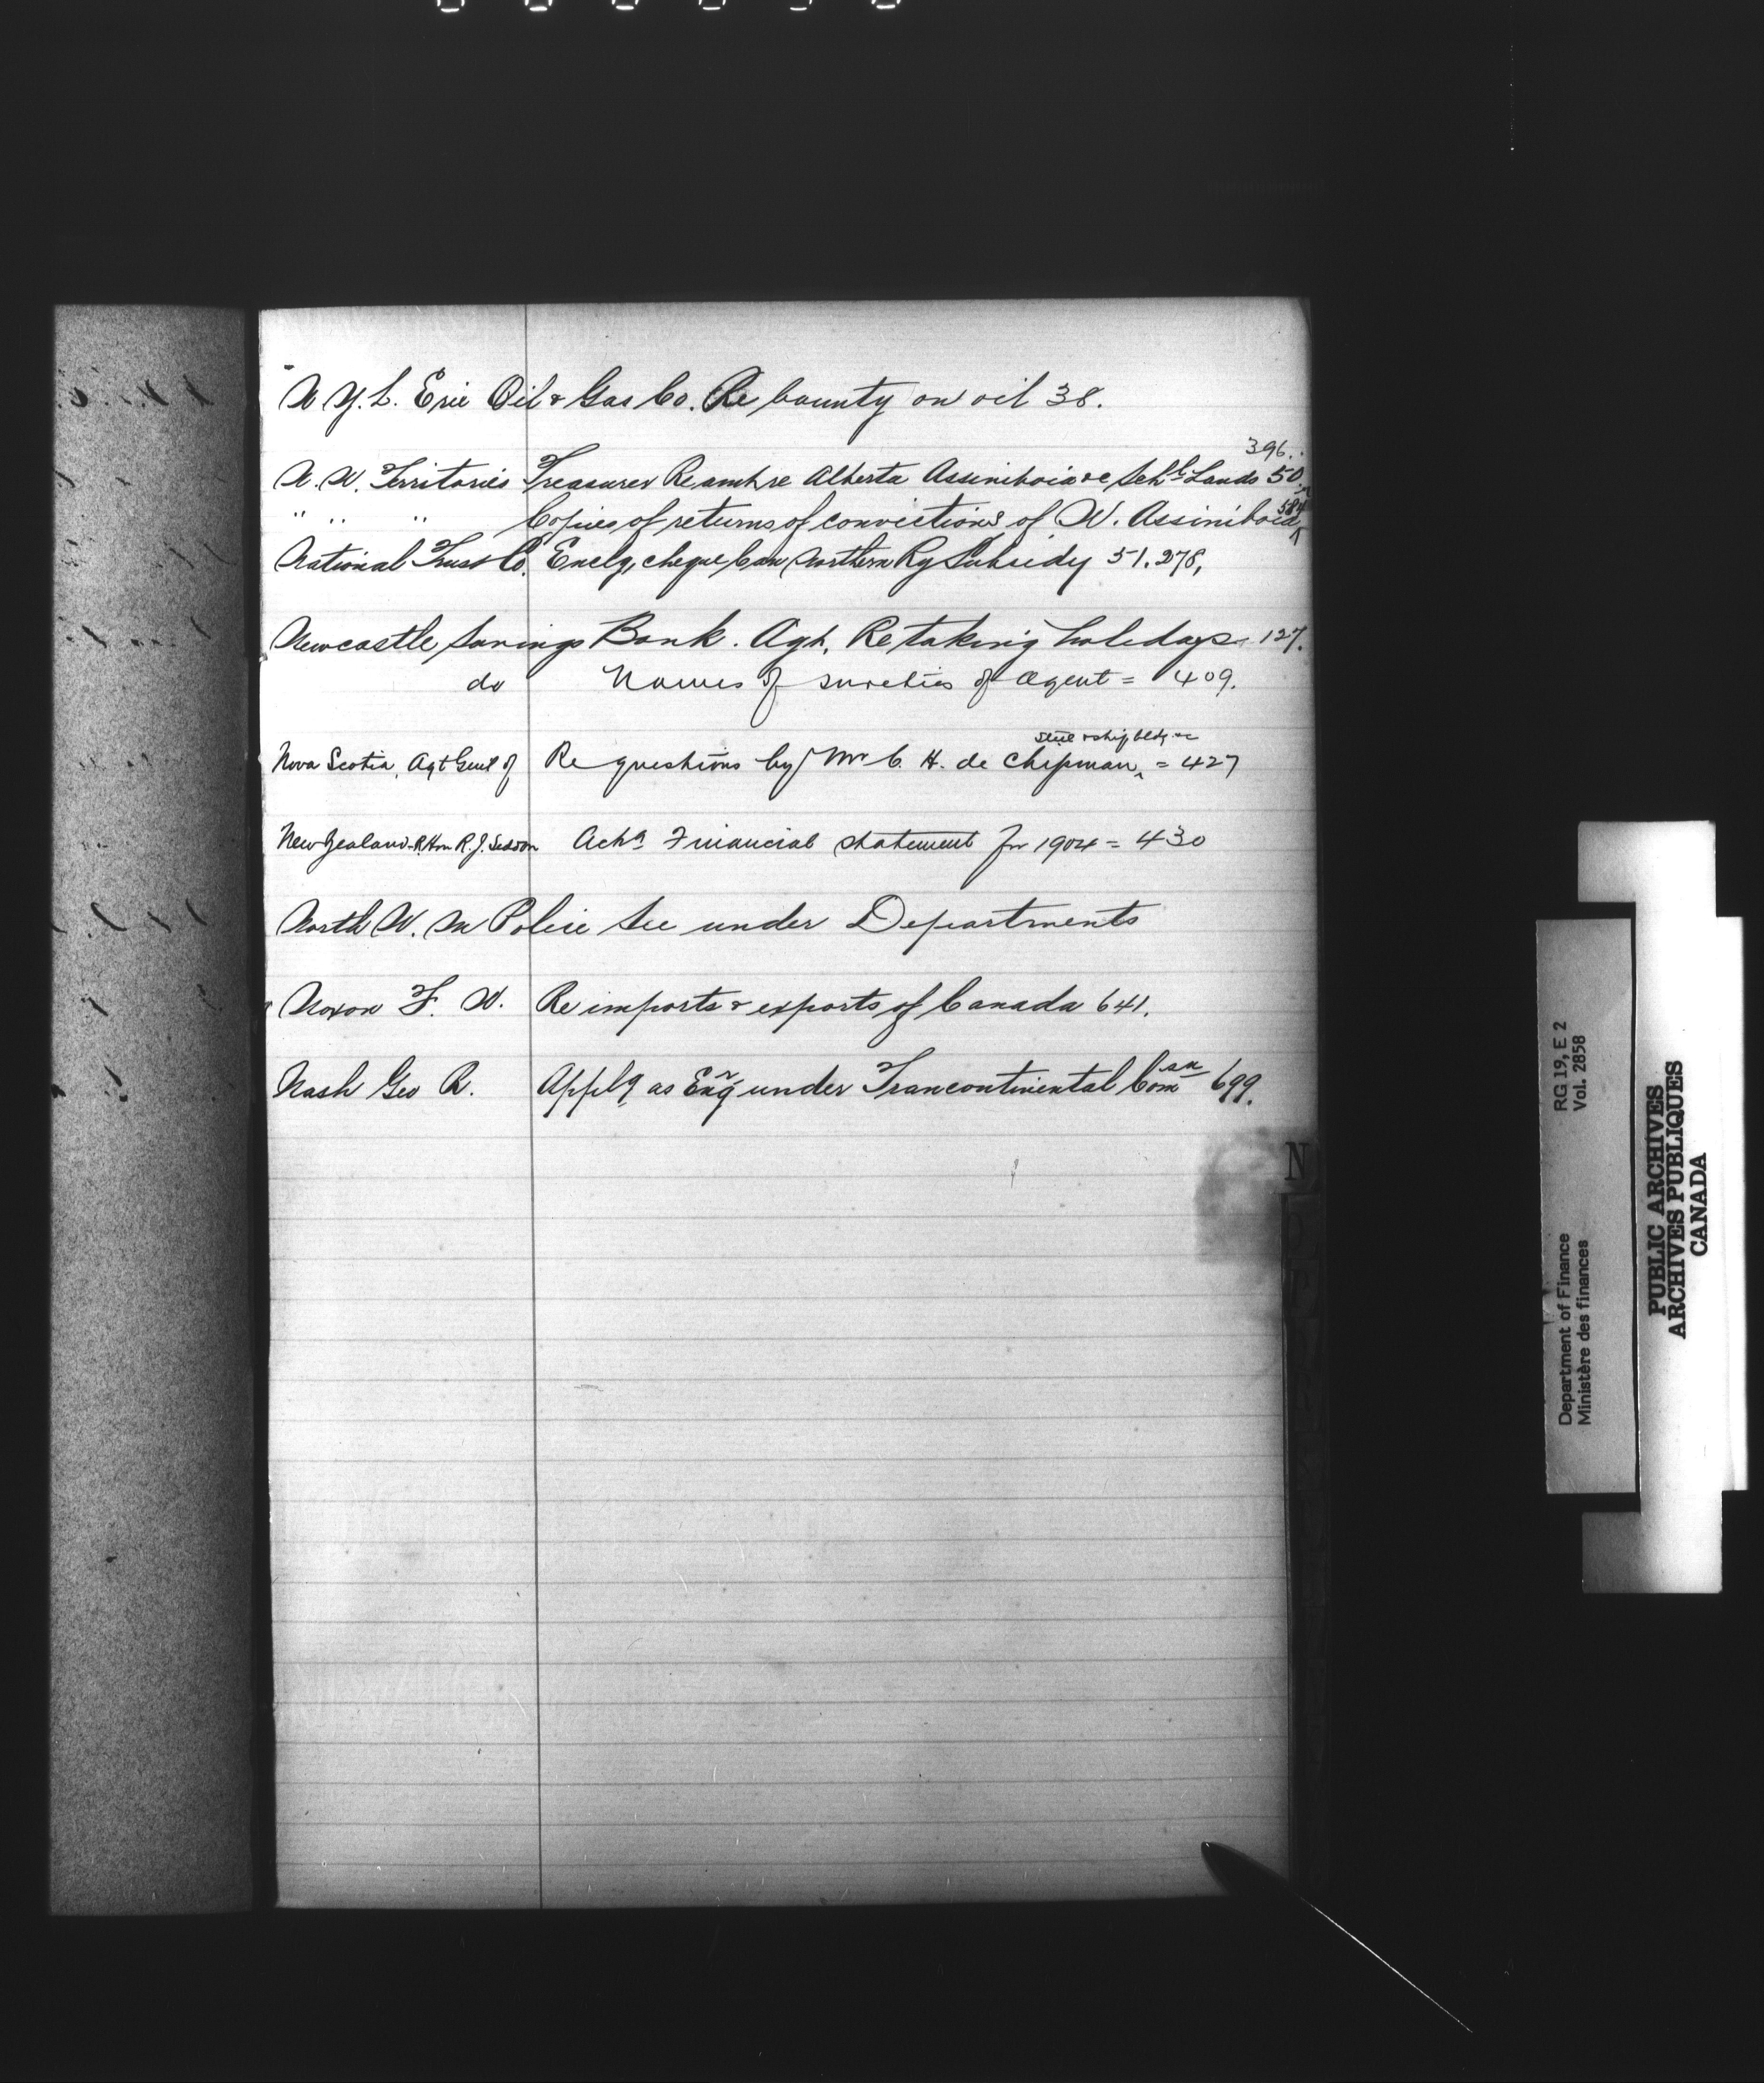 N Y. L. Erie Oil & Gas Co. Re bounty on oil 38.
396.
N. W. Territories Treasurer Re amt re Alberta Assiniboia &c Schl Lands 50
" " " Copies of returns of convictions of W. Assiniboia 584
National Trust Co. Enclg, cheque Can Northern Ry Subsidy 51. 278,
Newcastle Savings Bank. Agt. Re taking holidays 127.
do Names of sureties of agent = 409.
steel & ship bldg &c
Nova Scotia, Agt Genl of Re questions by Mr C. H. de Chipman = 427
New Zealand - R. Hon R. J. Seddon Ackg Financial Statement for 1904 = 430
North W. M Police See under Departments
Noxon F. W. Re imports & exports of Canada 641.
Nash Geo R. Applg as Engr under Trancontinental Com 699.
N
P
RG 19, E 2
Vol. 2858
Department of Finance
Ministère des finances
PUBLIC ARCHIVES
ARCHIVES PUBLIQUES
CANADA